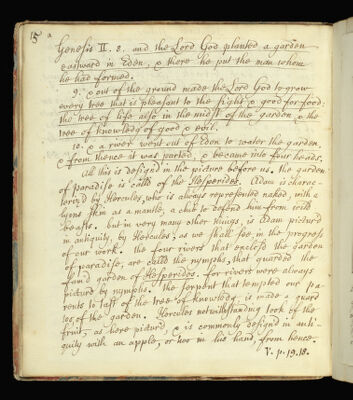 15 a
5
Genesis II. 8. and the Lord God planted a garden
eastward in Eden, & there he put the man whom
he had formed.
9. & out of the ground made the Lord God to grow
every tree that is pleasant to the sight & good for food:
the tree of life also in the midst of the garden & the
tree of knowledg of good & evil.
10. & a river went out of Eden to water the garden,
& from thence it was parted, & became into four heads.
all this is design'd in the picture before us. the garden
of paradise is calld of the Hesperides. Adam is charac-
teriz'd by Hercules, who is always represented naked, with a
lyons skin as a mantle, a club to defend him from wild
beasts. but in very many other things, is Adam pictur'd
in antiquity, by Hercules; as we shall see, in the progress
of our work. the four rivers that enclose the garden
of paradise, are calld the nymphs, that guarded the
famd garden of Hesperidos. for rivers were always
pictur'd by nymphs. the serpent that tempted our pa-
rents to tast of the tree of knowledg, is made a guard
too, of the garden. Hercules notwithstanding took of the
fruit, as here pictur'd, & is commonly design'd in anti-
quity with an apple, or two in his hand, from hence.
V. p. 19. 18.